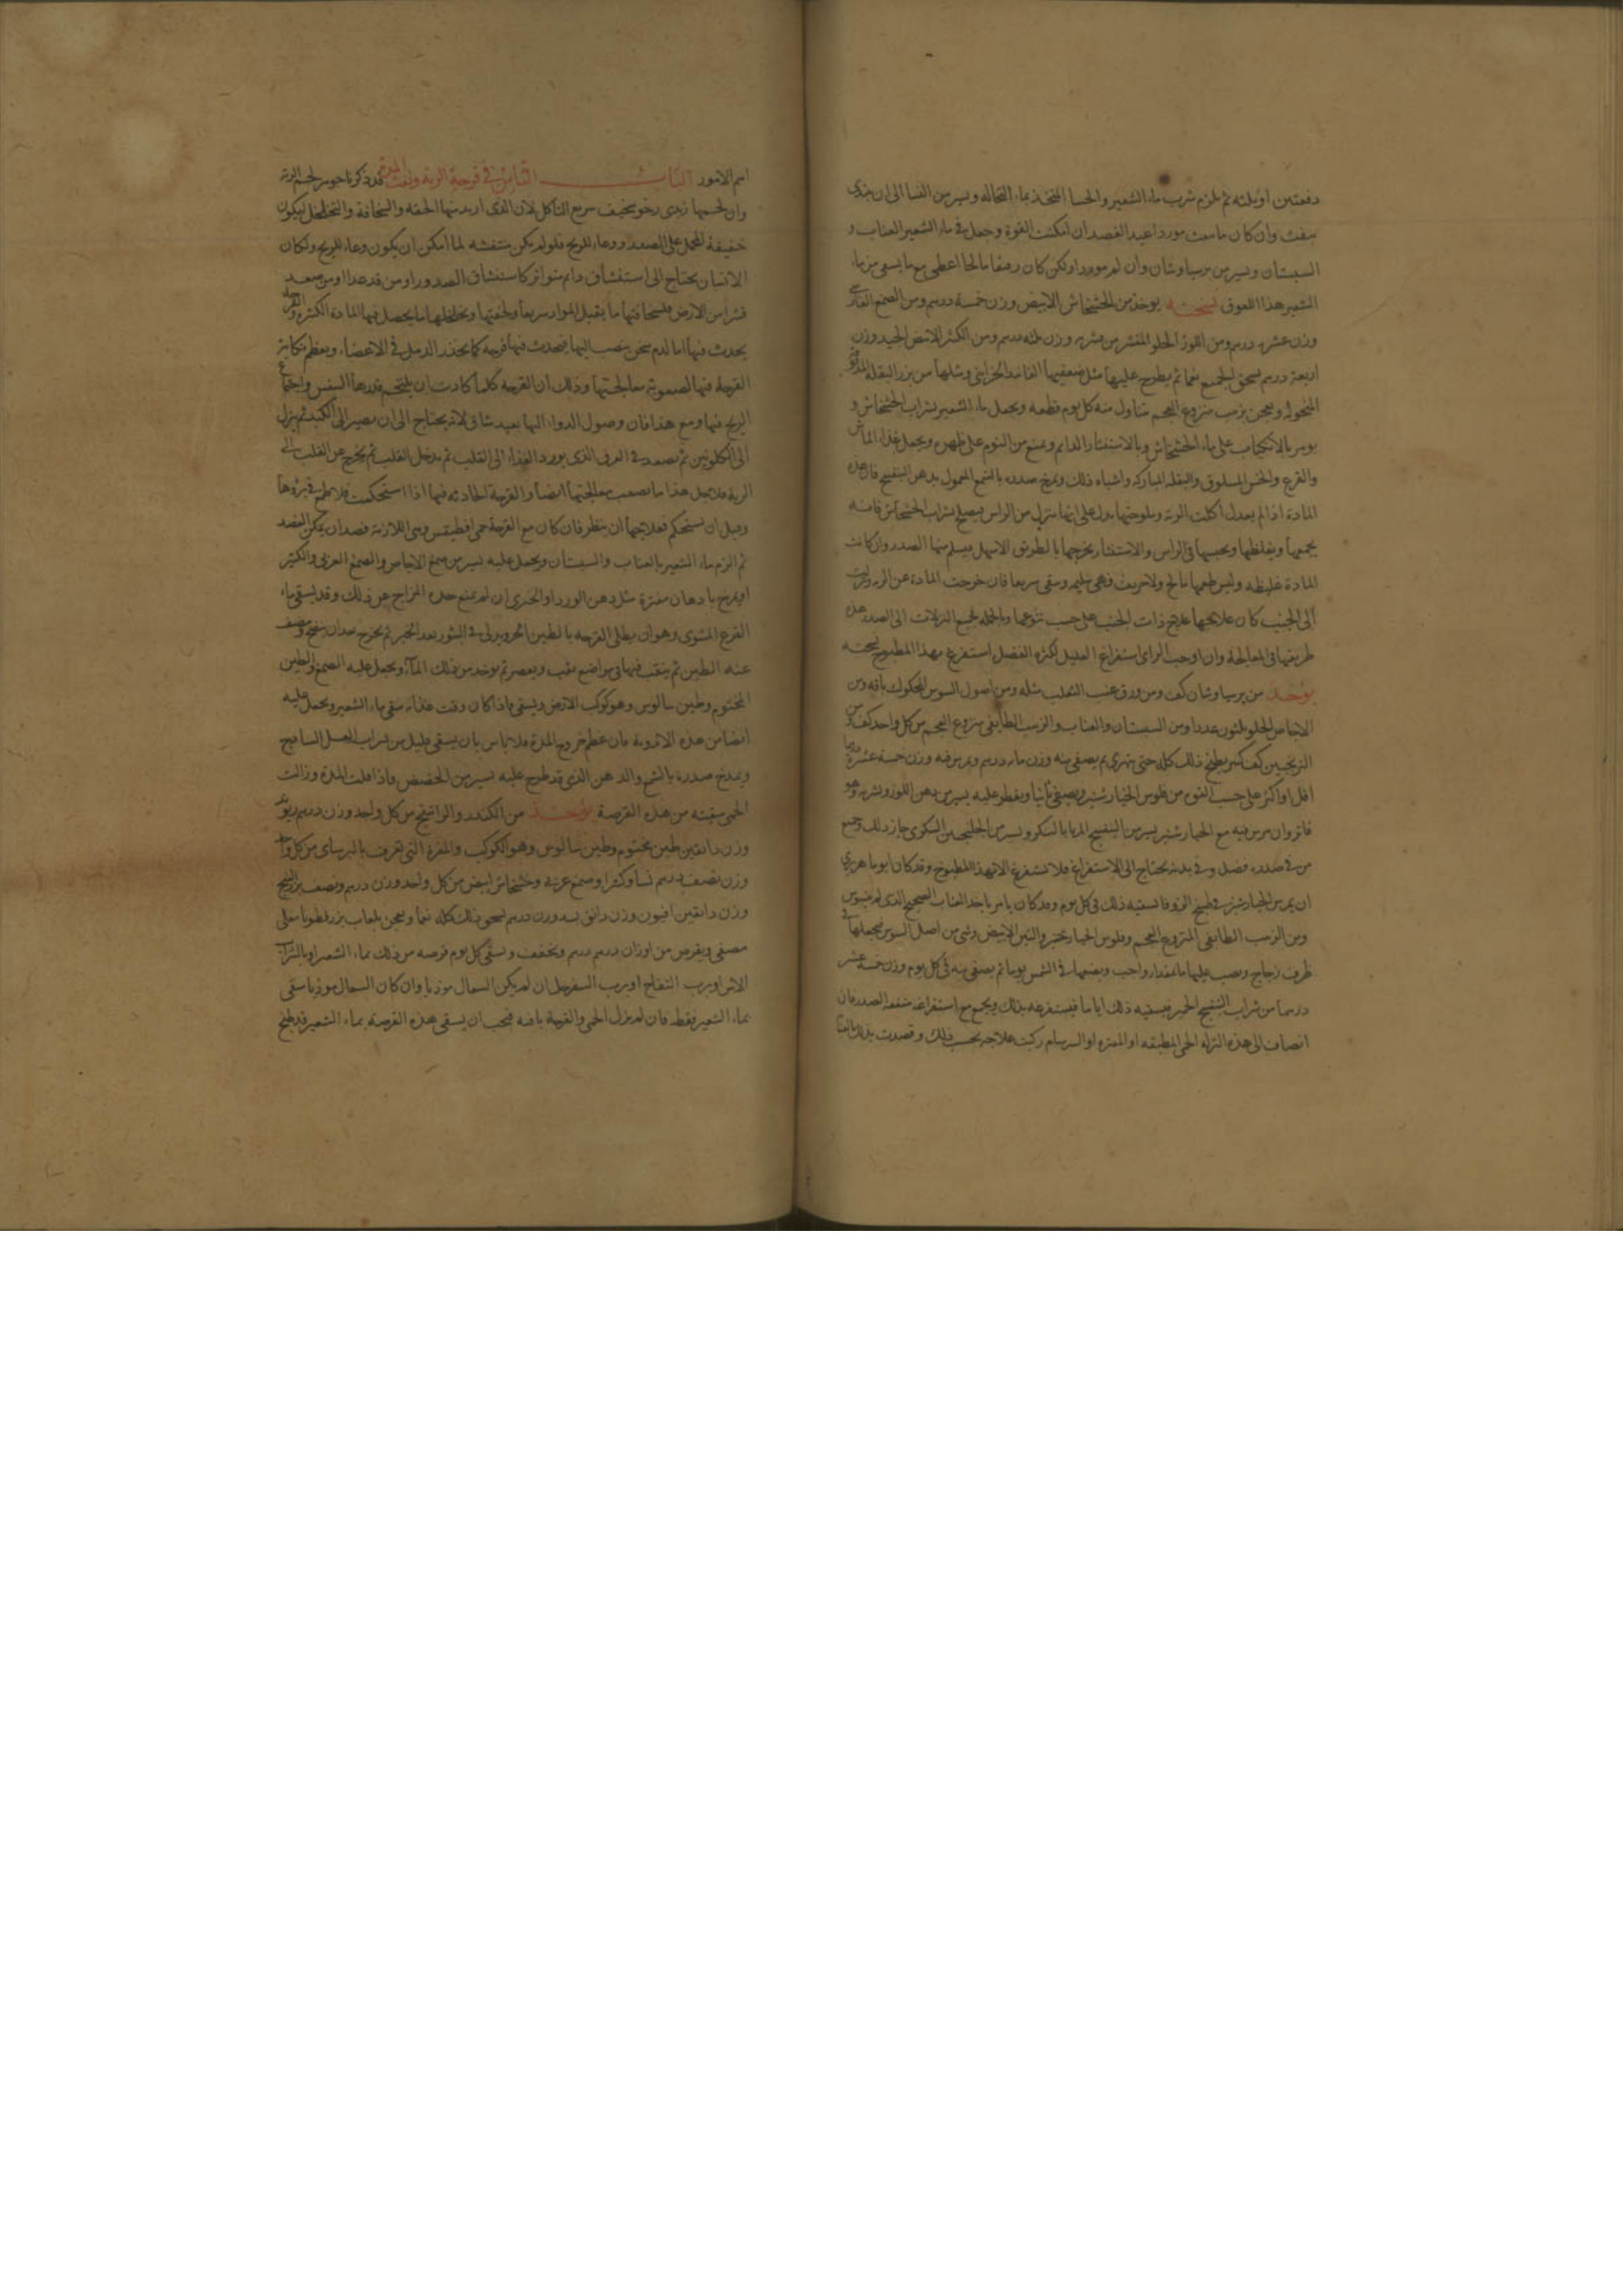 دفعتين او ثلثه ثم يلزم شرب ماء الشعير والحسا المتخذ بماء النخاله ويسير من النشا الى ان يبتدى
ينفث وان كان ما ينفث موردا اعيد الفصد ان امكنت القوة وجعل فى ماء الشعير العناب و
السبستان ويسير من برسياوشان وان لم موردا ولكن كان رقيقا مالحا اعطى مع ما يسقى من ماء
الشعير هذا اللعوق نسخته يوخذ من الخشخاش الابيض وزن خمسة درهم ومن الصمغ الفارسى
وزن عشره درهم ومن اللوز الحلو المقشر من قشره وزن ثلثه درهم ومن الكثيرا الابيض الجيد وزن
اربعة درهم يسحق الجميع نعما ثم يطرح عليها مثل ضعفيها الفانيد الخزاينى ومثلها من بزر البقلة المدقوق
المنخول ويعجن بزبيب منزوع العجم يتناول منه كل يوم قطعه ويجعل ماء الشعير بشراب الخشخاش و
يومر بالانكباب على ماء الخشخاش وبالاستنثار الدايم ويمنع من النوم على ظهره ويجعل غذاء الماش
والقرع والخس المسلوق والبقله المباركه واشباه ذلك ويمرخ صدره بالشمع المعمول بدهن البنفسج فان هذه
المادة اذا لم يعدل اكلت الرئة وملوحتها يدل على انها تنزل من الراس فيصلح شراب الخشخاش فانه
يجمعها ويغلظها ويحبسها فى الراس والاستنثار يخرجها بالطريق الاسهل فيسلم منها الصدر وان كانت
المادة غليظه وليس طعمها مالح ولا حريف فهى سليمه وسقى سريعا فان خرجت المادة عن الريه وانصبت
الى الجنب كان علاجها علاج ذات الجنب على حسب تنوعها وبالجمله فجميع النزلات الى الصدر هذه
طريقها فى المعالجة وان اوجب الراى استفراغ العليل لكثرة الفضل استفرغ بهذا المطبوخ نسخته
يوخذ من برسياوشان كف ومن ورق عنب الثعلب مثله ومن اصول السوس المحكوك باقه ومن
الاجاص الحلو ثلثون عددا ومن السبستان والعناب والزبيب الطايفى منزوع العجم من كل واحد كف ومن
الترنجبين كف كبير يطبخ ذلك كله حتى يتهرى ثم يصفى منه وزن مايه درهم ويمرس فيه وزن خمسة عشر درهما
اقل او اكثر على حسب القوه من فلوس الخيارشنبر ويصفى ثانيا ويقطر عليه يسير من دهن اللوز ويشربه وهو
فاتر وان مرس فيه مع الخيارشنبر يسير من البنفسج المربا بالسكر ويسير من الجلنجبين السكرى جاز ذلك وجميع
من فى صدره فضل وفى بدنه يحتاج الى الاستفراغ فلا تستفرغ الا بهذا المطبوخ وقد كان ابو ماهر يرى
ان يمرس الخيارشنبر فى طبيخ الزوفا تسقيه ذلك فى كل يوم وقد كان يامر باخذ العناب الصحيح الذى لم يتسوس
ومن الزبيب الطايفى المنزوع العجم وفلوس الخيارشنبر والتين الابيض وشى من اصل السوس فيجعلها فى
ظرف زجاج ويصب عليها ما بمقدار واجب ويضعها فى الشمس يوما ثم يصفى منه فى كل يوم وزن خمسة عشر
درهما من شراب البنفسج الخمير فيسقيه ذلك اياما فيستفرغه بذلك ويجمع مع استفراغه منفعه الصدر فان
انضاف الى هذه النزله الحمى المطبقه او المفتره او السرسام ركبت علاجه بحسب ذلك وقصدت بذلك
اسم الامور الباب الثامن فى قرحة الرية ونفث المدة قد ذكرنا جوهر لحم الرئة
وان لحمها زبدى رخو سخيف سريع التاكل لان الذى اريد منها الخفه والسخافة والتخلخل ليكون
خفيفة المحمل على الصدر ووعاء للريح فلو لم يكن متنفشه لما امكن ان يكون وعاء للريح ولكان
الانسان يحتاج الى استنشاق دايم متواتر كاستنشاق الصدور او من قد عدا او من صعد
نشزا من الارض فلسخافتها ما يقبل المواد سريعا ولخفتها وتخلخلها ما يحصل فيها المادة الكثيره والقرحه
يحدث فيها اما لدم سخن ينصب اليها فيحدث فيها قرحه كما يحدث الدمل فى الاعضاء ويعظم نكاية
القرحة فيها لصعوبة معالجتها وذلك ان القرحه كلما كادت ان يلتحم فدرها النفس واجتماع
الريح فيها ومع هذا فان وصول الدواء اليها بعيد شاق لانه يحتاج الى ان يصير الى الكبد ثم ينزل
الى الكلوتين ثم يصعد فى العرق الذى يورد الغذاء الى القلب ثم يدخل القلب ثم يخرج عن القلب الى
الرية فلاجل هذا ما يصعب معالجتها ايضا والقرحة الحادثه فيها اذا استحكمت فلا يطمع فى بروها
وقبل ان يستحكم فعلاجها ان ينظر فان كان مع القرحة حمى اقطيقس وهى اللازمه فصد ان يمكن الفصد
ثم الزم ماء الشعير بالعناب والسبستان ويجعل عليه يسير من صمغ الاجاص والصمغ العربى والكثيرا
او يمرخ بادهان مفترة مثل دهن الورد او الخيرى ان لم يمنع حدة المزاج عن ذلك وقد يسقى ماء
القرع المشوى وهو ان يطلى القرعه بالطين الحر ويدلى فى التنور بعد الخبز ثم يخرج بعد ان ينضج ويكشف
عنه الطين ثم يثقب فيها فى مواضع ثقب ويعصر ثم يوخذ من ذلك الماء ويجعل عليه الصمغ والطين
المختوم وطين سالوس وهو كوكب الارض ويسقى فاذا كان وقت غذاء سقى ماء الشعير ويجعل عليه
ايضا من هذه الادوية فان عظم خروج المدة فلا باس بان يسقى قليل من شراب العسل الساذج
ويمرخ صدره بالشمع والدهن الذى قد طرح عليه يسير من الحضض فاذا قلت المدة وزالت
الحمى سقيته من هذه القرصة يوخذ من الكندر والراتينج من كل واحد وزن درهم
وزن دانقين طين مختوم وطين سالوس وهو الكوكب والمغرة التى تعرف بالبرساى من كل واحد
وزن نصف درهم نشا وكثيرا وصمغ عربى وخشخاش ابيض من كل واحد وزن درهم ونصف بزر البنج
وزن دانقين افيون وزن دانق وزن درهم يسحق ذلك كله نعما ويعجن بلعاب بزر قطونا مغلى
مصفى ويقرص من اوزان درهم درهم ويجفف ويسقى كل يوم قرصه من ذلك بماء الشعير او بالشراب
الاس او برب التفاح او برب السفرجل ان لم يكن السعال موذيا وان كان السعال موذيا سقى
بماء الشعير فقط فان لم يزل الحمى والقرحة باقيه فيجب ان يسقى هذه القرصة بماء الشعير قد طبخ